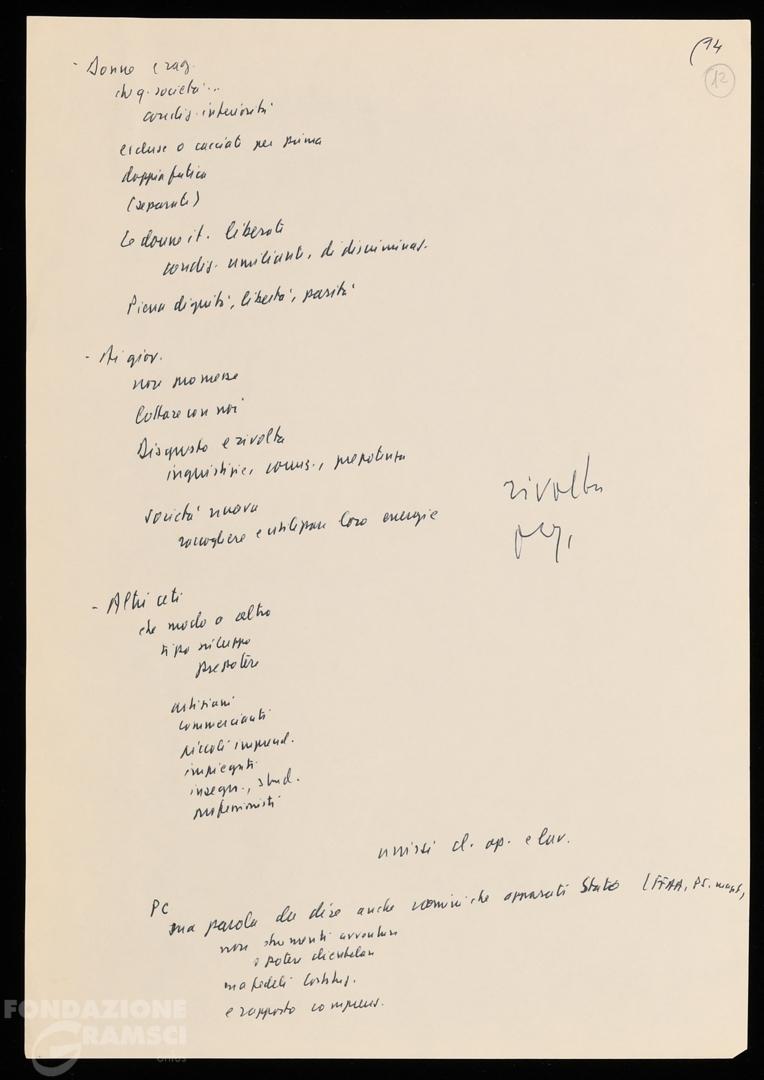 (14
12
- Donne e rag.
che q. società...
condiz. inferiorità
escluse o cacciate per prima
doppia fatica
(separate)
Le donne it. liberate
condiz. umilianti, di discriminaz.
Piena dignità, libertà, parità
- Ai giov.
non promesse
Lottare con noi
Disgusto e rivolta
ingiustizie, corruz., prepotenza
società nuova
raccogliere e utilizzare loro energie
rivolta
- Altri ceti
che modo o altro
tipo sviluppo
prepotere
artigiani
commercianti
piccoli imprend.
impiegati
insegn., stud.
professionisti
unirsi cl. op. e lav.
PC
una parola da dire anche uomini che apparati Stato (FFAA, PS. mag.,
non strumenti avventure
o potere clientelare
ma fedeli Costituz.
e rapporto comprens.
FONDAZIONE
GRAMSCI
onlus